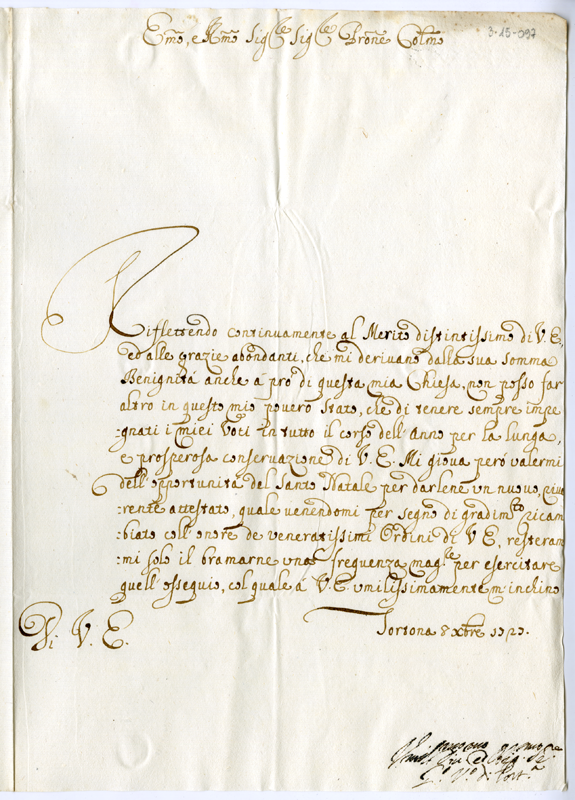 Emo, e Rmo Sig.re Sig.re Prone Colmo
3-15-097
Riflettendo continuamente al Merito distintissimo di V. E.,
ed alle grazie abondanti, che mi derivano dalla sua somma
Benignità anche á pro di questa mia Chiesa, non posso far
altro in questo mio povero stato, che di tenere sempre impe
:gnati i miei Voti in tutto il corso dell'Anno per la lunga,
e prosperosa conservazione di V. E. Mi giova peró valermi
dell'opportunità del Santo Natale per darlene un nuovo, rive
:rente attestato, quale venendomi per segno di gradim.to ricam
:biato coll'onore de veneratissimi Ordini di V E, resteran
:mi solo il bramarne una frequenza mag.re per esercitare
quell'ossequio, col quale á V. E. umilissimamente m'inchino
Di V. E.
Tortona 8 Xbre